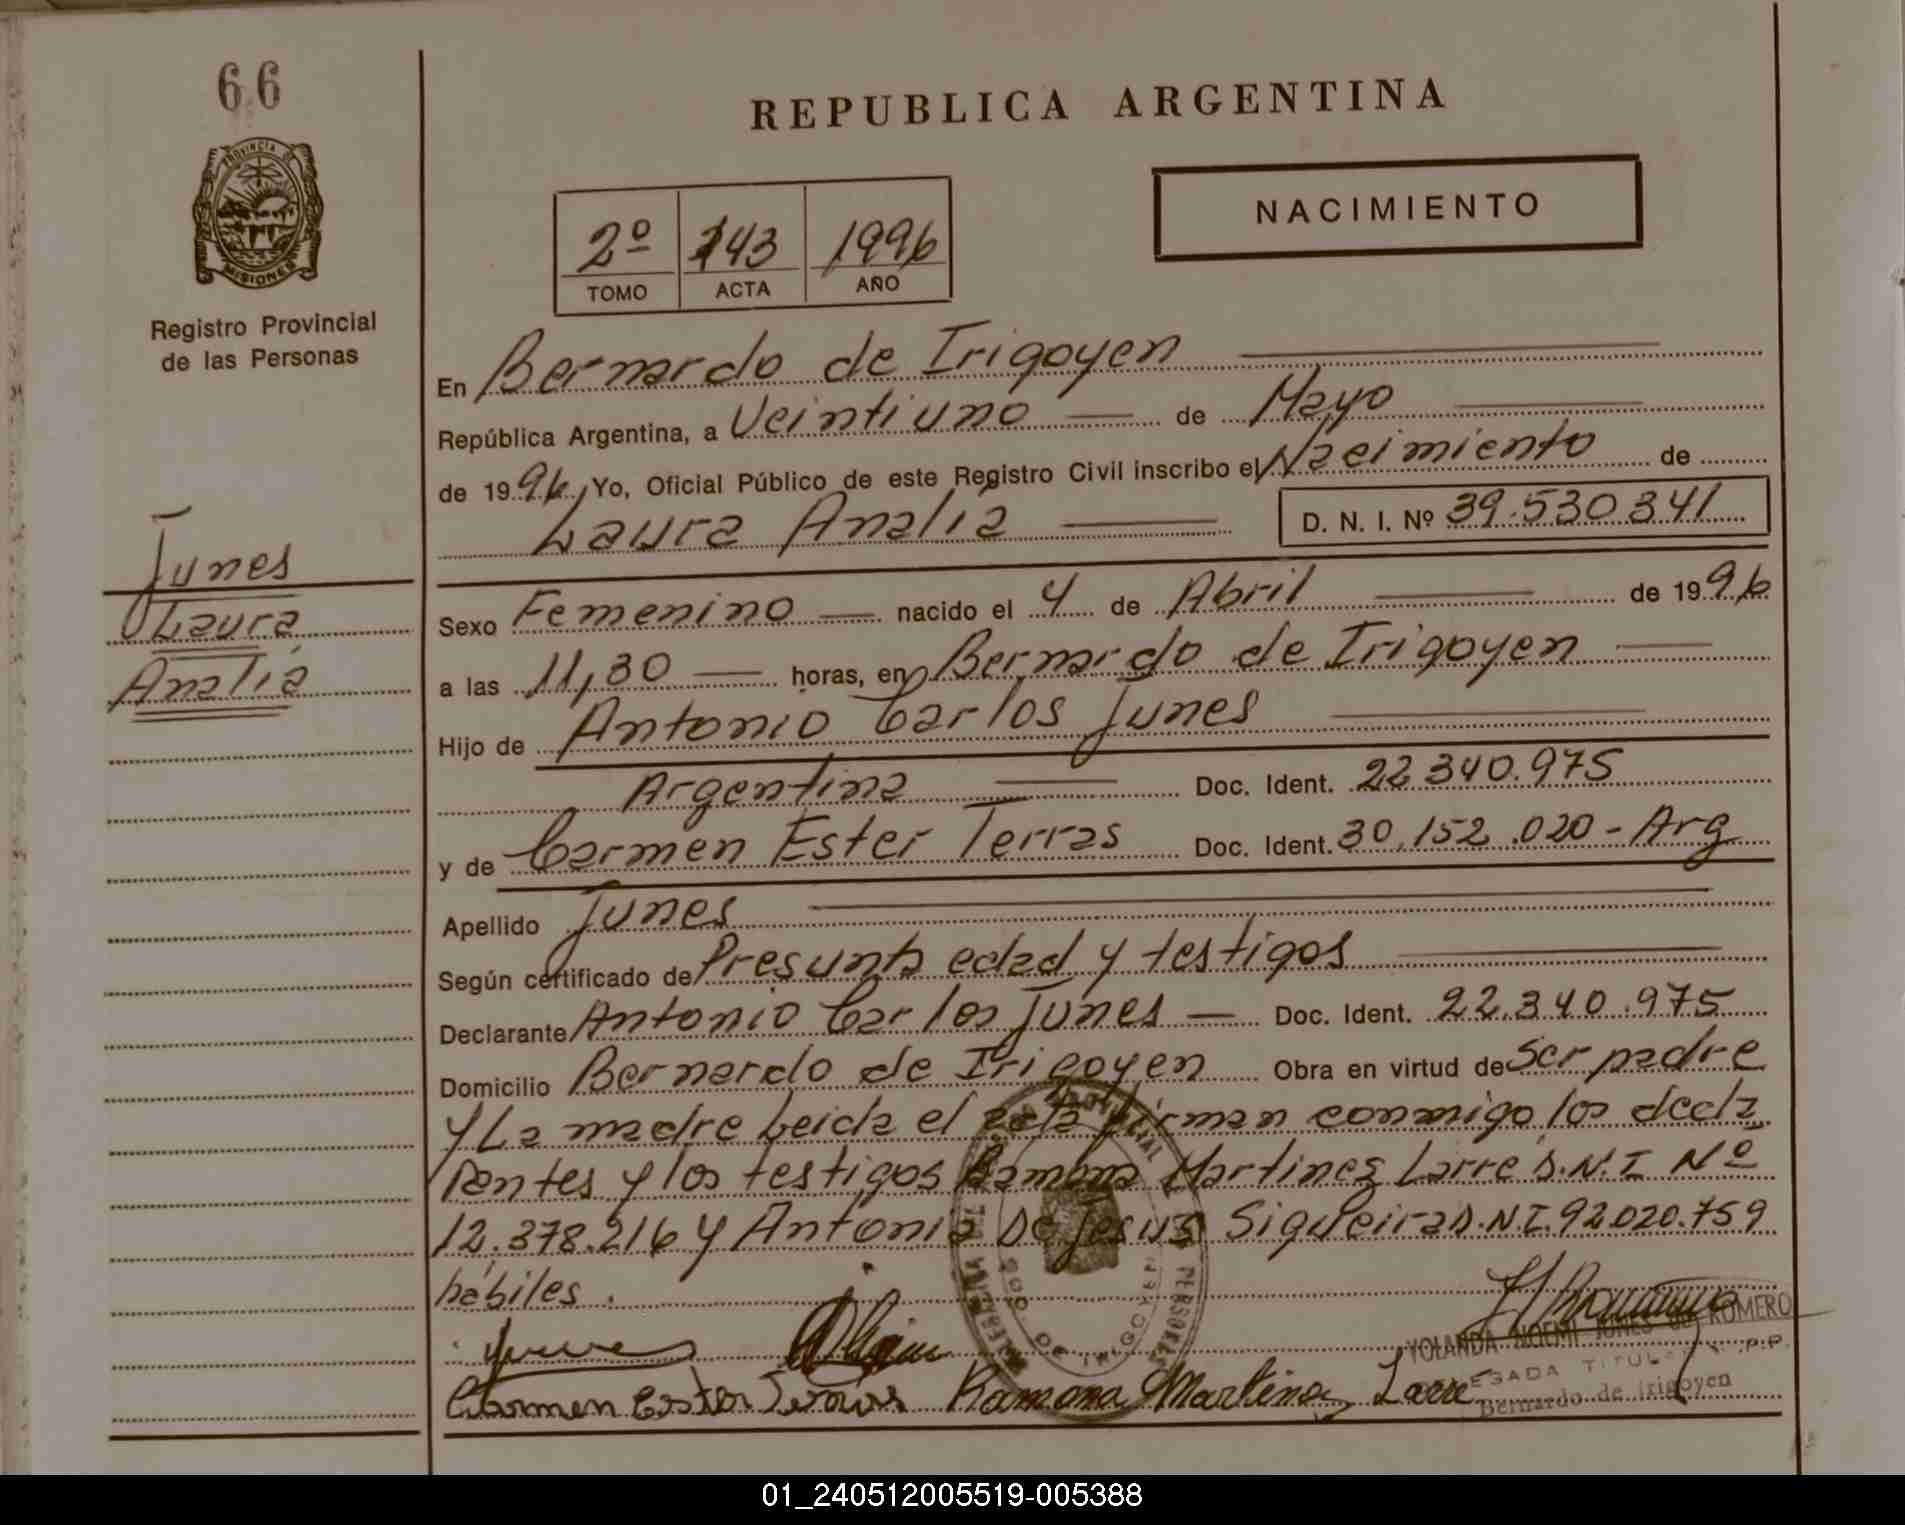 66
REPUBLICA ARGENTINA
NACIMIENTO
PROVINCIA DE
MISIONES
Registro Provincial
de las Personas
2º 143 1996
TOMO ACTA AÑO
En Bernardo de Irigoyen
República Argentina, a Veintiuno de Mayo
de 1996, Yo, Oficial Público de este Registro Civil inscribo el Nacimiento de
Laura Analia D. N. I. Nº 39.530.341
Junes
Laura
Analia
Sexo Femenino nacido el 4 de Abril de 1996
a las 11,30 horas, en Bernardo de Irigoyen
Hijo de Antonio Carlos Junes
Argentina Doc. Ident. 22.340.975
y de Carmen Ester Terras Doc. Ident. 30.152.020 - Arg
Apellido Junes
Según certificado de Presunta edad y testigos
Declarante Antonio Carlos Junes Doc. Ident. 22.340.975
Domicilio Bernardo de Irigoyen Obra en virtud de Ser padre
y La madre Leida el acta firman conmigo los decla
rantes y los testigos Ramona Martinez Larre D.N.I Nº
12.378.216 y Antonia De Jesus Siqueiras D.N.I. 92.020.759
habiles.
YOLANDA NOEMI JUNES DE ROMERO
TITULAR R.P.P.
Bernardo de Irigoyen
Carmen Ester Ramona Martinez Larre
01_240512005519-005388